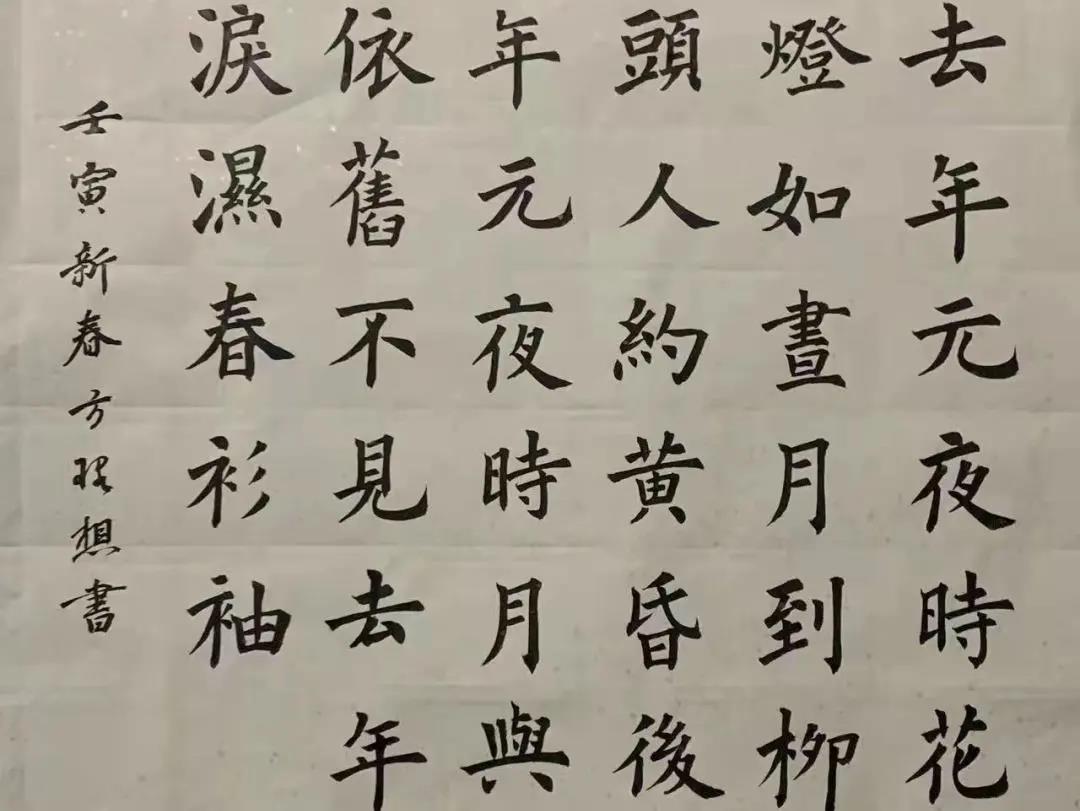 去年元夜時花
燈如晝月到柳
頭人約黄昏後
年元夜時月與
依舊不見去年
淚濕春衫袖
壬寅新春方想書